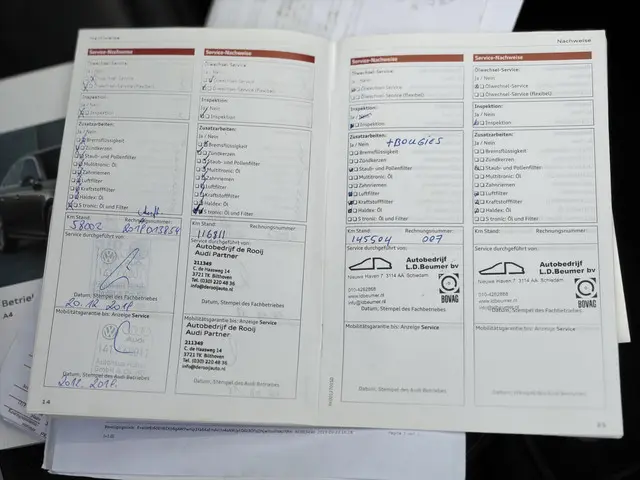 Nachweise
Service-Nachweise
Ölwechsel-Service:
Ja / Nein
Ölwechsel-Service
Ölwechsel-Service (flexibel)
Inspektion:
Ja / Nein
Inspektion
Zusatzarbeiten:
Ja / Nein
Bremsflüssigkeit
Zündkerzen
Staub- und Pollenfilter
Multitronic: Öl
Zahnriemen
Luftfilter
Kraftstofffilter
Haldex: Öl
S tronic: Öl und Filter
Km Stand: Rechnungsnummer:
58002
Service durchgeführt von:
20.12.2018
Datum, Stempel des Fachbetriebes
Mobilitätsgarantie bis: Anzeige Service
Datum, Stempel des Audi Betriebes
20.12.2018.
14
Service-Nachweise
Ölwechsel-Service:
Ja / Nein
Ölwechsel-Service
Ölwechsel-Service (flexibel)
Inspektion:
Ja / Nein
Inspektion
Zusatzarbeiten:
Ja / Nein
Bremsflüssigkeit
Zündkerzen
Staub- und Pollenfilter
Multitronic: Öl
Zahnriemen
Luftfilter
Kraftstofffilter
Haldex: Öl
S tronic: Öl und Filter
Km Stand: Rechnungsnummer:
116811
Service durchgeführt von:
Autobedrijf de Rooij
Audi Partner
211349
C. de Haasweg 14
3721 TK Bilthoven
Tel. (030) 220 48 36
info@derooijauto.nl
Datum, Stempel des Fachbetriebes
Mobilitätsgarantie bis: Anzeige Service
Autobedrijf de Rooij
Audi Partner
211349
C. de Haasweg 14
3721 TK Bilthoven
Tel. (030) 220 48 36
info@derooijauto.nl
Datum, Stempel des Audi Betriebes
Nachweise
Service-Nachweise
Ölwechsel-Service:
Ja / Nein
Ölwechsel-Service
Ölwechsel-Service (flexibel)
Inspektion:
Ja / Nein
Inspektion
Zusatzarbeiten:
Ja / Nein +BOUGIES
Bremsflüssigkeit
Zündkerzen
Staub- und Pollenfilter
Multitronic: Öl
Zahnriemen
Luftfilter
Kraftstofffilter
Haldex: Öl
S tronic: Öl und Filter
Km Stand: Rechnungsnummer:
145504 007
Service durchgeführt von:
Autobedrijf
L.D.Beumer bv
Nieuwe Haven 7, 3114 AA Schiedam
010-4262868
www.ldbeumer.nl
info@ldbeumer.nl
BOVAG
Datum, Stempel des Fachbetriebes
Mobilitätsgarantie bis: Anzeige Service
Datum, Stempel des Audi Betriebes
Service-Nachweise
Ölwechsel-Service:
Ja / Nein
Ölwechsel-Service
Ölwechsel-Service (flexibel)
Inspektion:
Ja / Nein
Inspektion
Zusatzarbeiten:
Ja / Nein
Bremsflüssigkeit
Zündkerzen
Staub- und Pollenfilter
Multitronic: Öl
Zahnriemen
Luftfilter
Kraftstofffilter
Haldex: Öl
S tronic: Öl und Filter
Km Stand: Rechnungsnummer:
Service durchgeführt von:
Autobedrijf
L.D.Beumer bv
Nieuwe Haven 7, 3114 AA Schiedam
010-4262868
www.ldbeumer.nl
BOVAG
Datum, Stempel des Fachbetriebes
Mobilitätsgarantie bis: Anzeige Service
Datum, Stempel des Audi Betriebes
A4